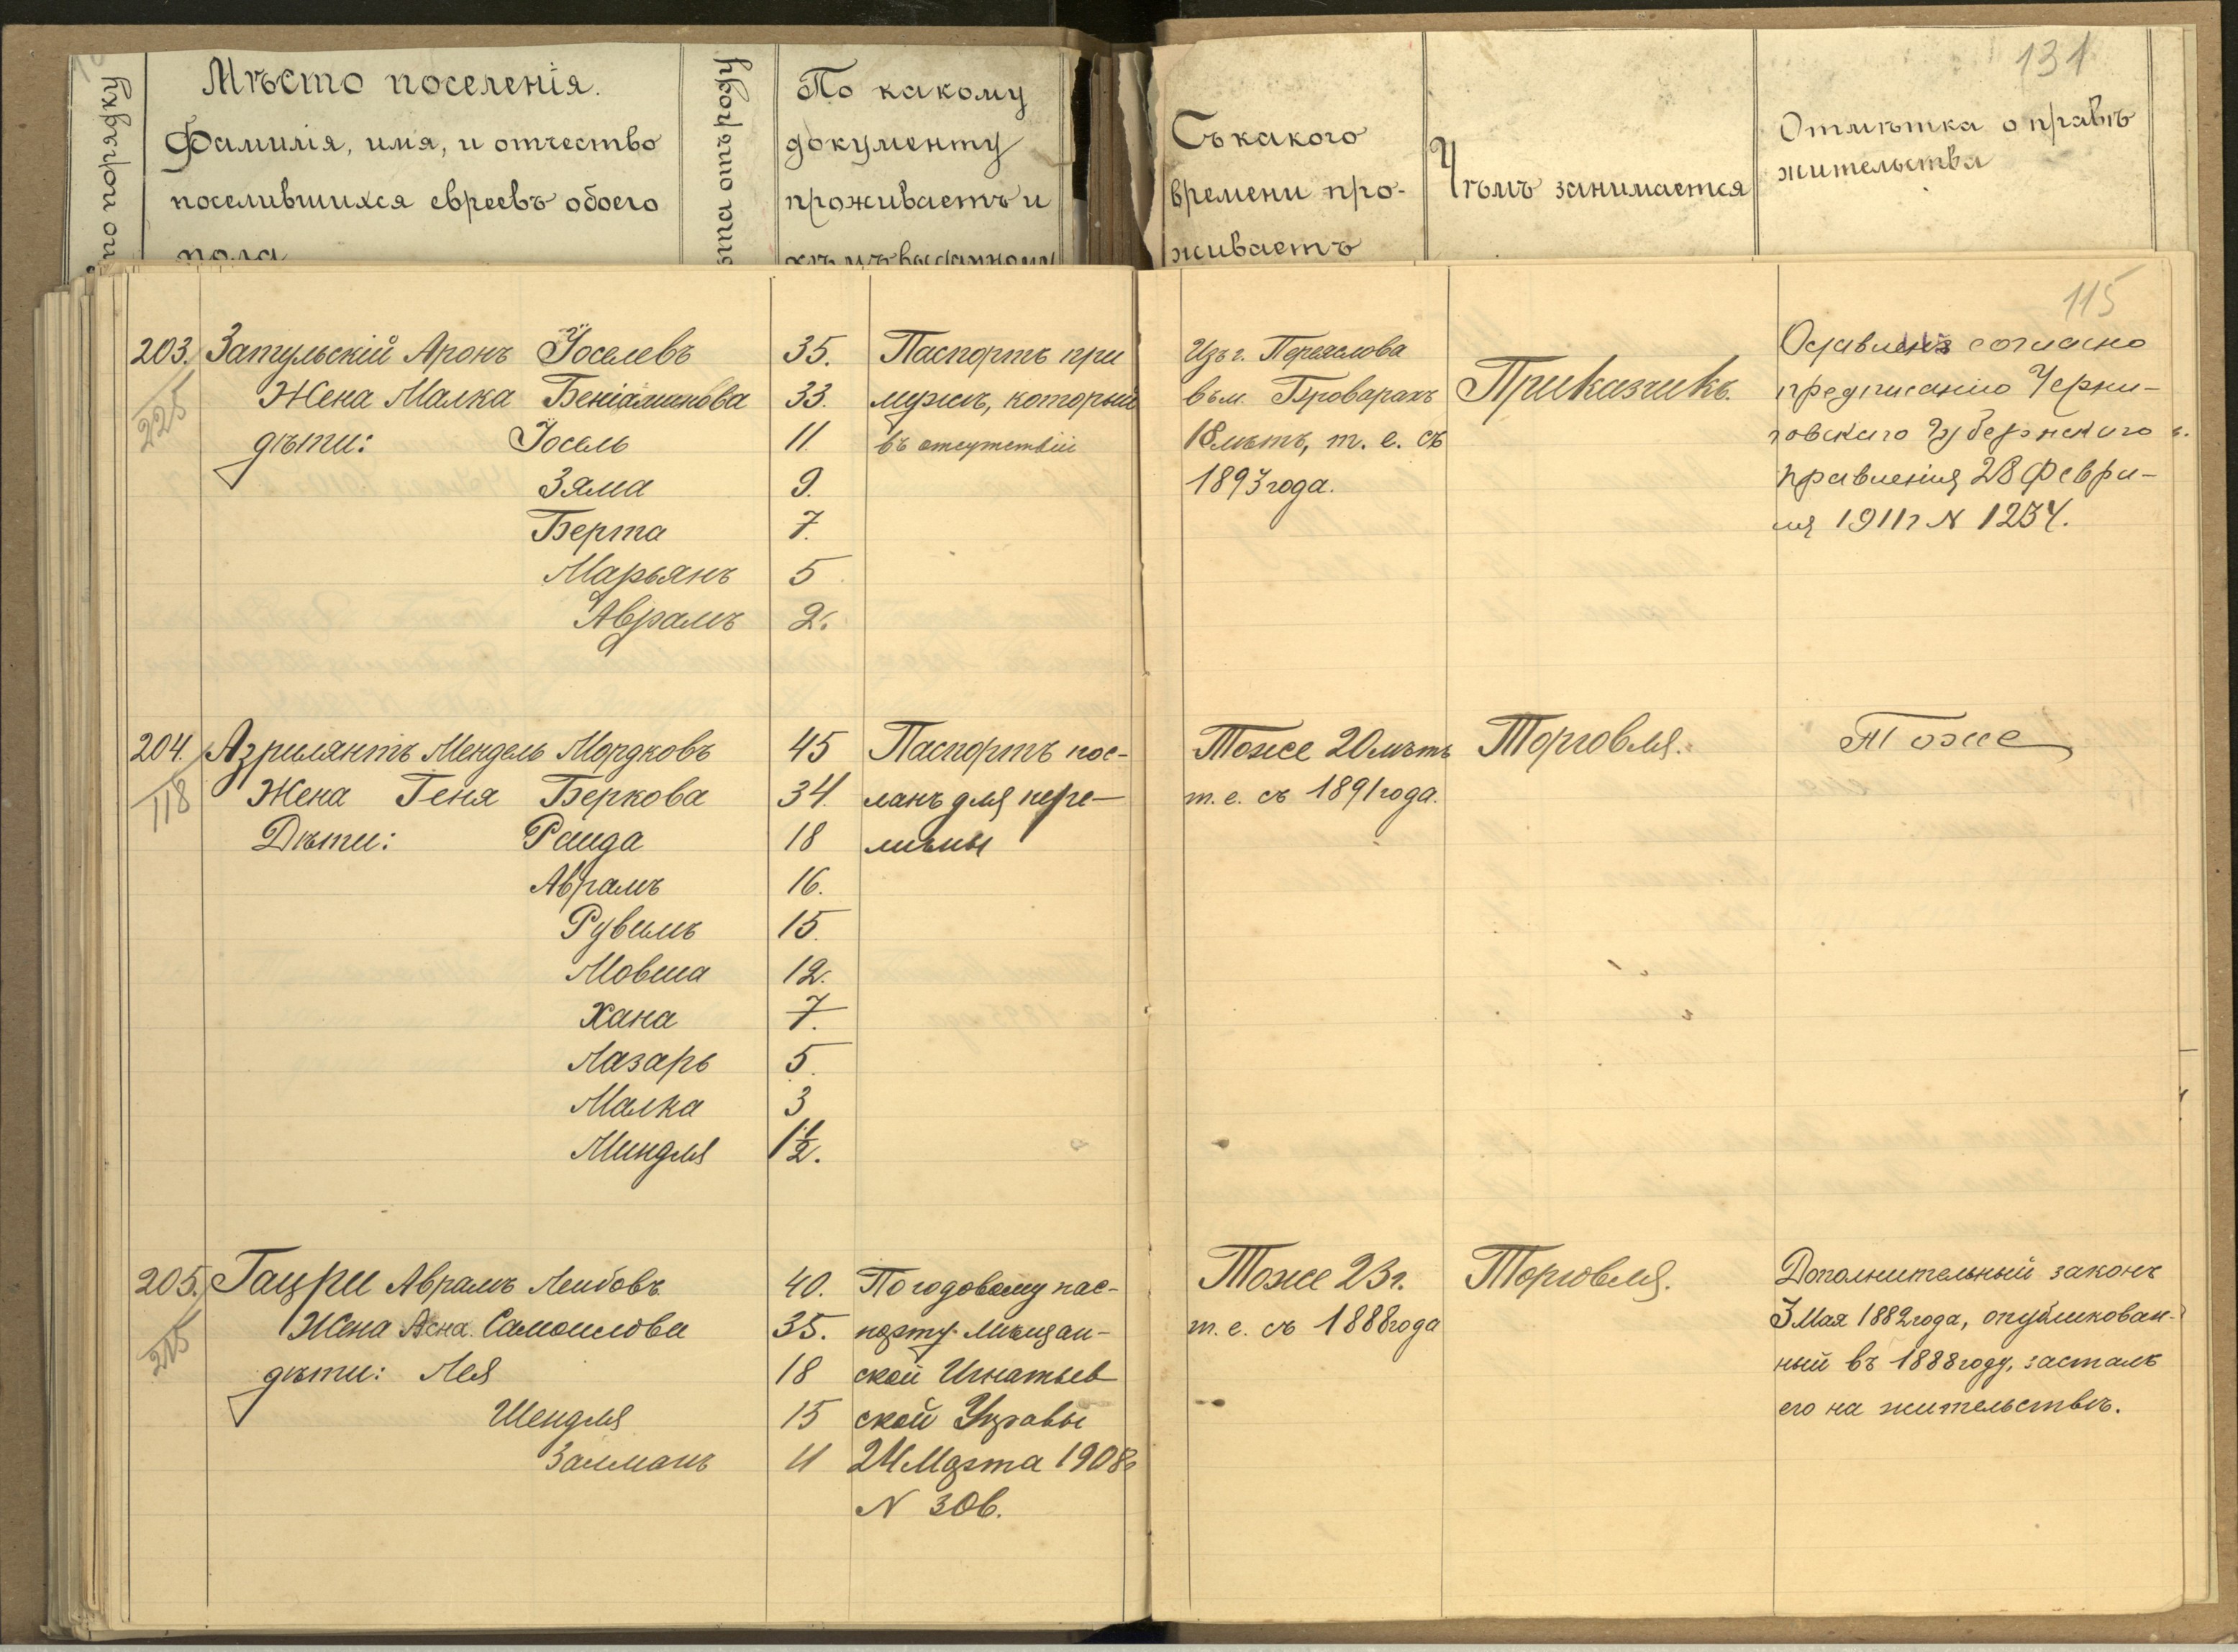 131
по порядку
Мѣсто поселенія.
Фамилія, имя, и отчество
поселившихся евреевъ обоего
пола
отъ роду
По какому
документу
проживаетъ и
кѣмъ выданному
Съ какого
времени про-
живаетъ
Чѣмъ занимается
Отмѣтка о правѣ
жительства
115
203. Затульскій Аронъ Іоселевъ 35. Паспортъ при
225 Жена Малка Беніаминова 33. мужѣ, который
дѣти: Іосель 11. въ отсутствіи
Зяма 9.
Берта 7.
Марьянъ 5
Аврамъ 2.
Изъ г. Переяслова
въ м. Броварахъ
18 лѣтъ, т. е. съ
1893 года.
Приказчикъ.
Оставленъ согласно
предписанію Черни-
говскаго Губернскаго
Правленія 28 Февра-
ля 1911 г N 1254.
204. Азрилянтъ Мендель Мордковъ 45 Паспортъ пос-
118 Жена Геня Беркова 34. ланъ для пере-
Дѣти: Раида 18 мѣны
Аврамъ 16.
Рувимъ 15.
Мовша 12.
Хана 7.
Лазарь 5.
Малка 3
Миндля 1½.
Тоже 20 лѣтъ
т. е. съ 1891 года.
Торговля.
Тоже
205. Гацри Аврамъ Лейбовъ 40. По годовому пас-
215 Жена Асна Самоилова 35. порту Мѣщан-
дѣти: Лея 18 ской Игнатьев
Шендля 15 ской Управы
Залманъ 11 24 Марта 1908 г
N 306.
Тоже 23 г.
т. е. съ 1888 года
Торговля.
Дополнительный законъ
3 Мая 1882 года, опубликован-
ный въ 1888 году, засталъ
его на жительствѣ.